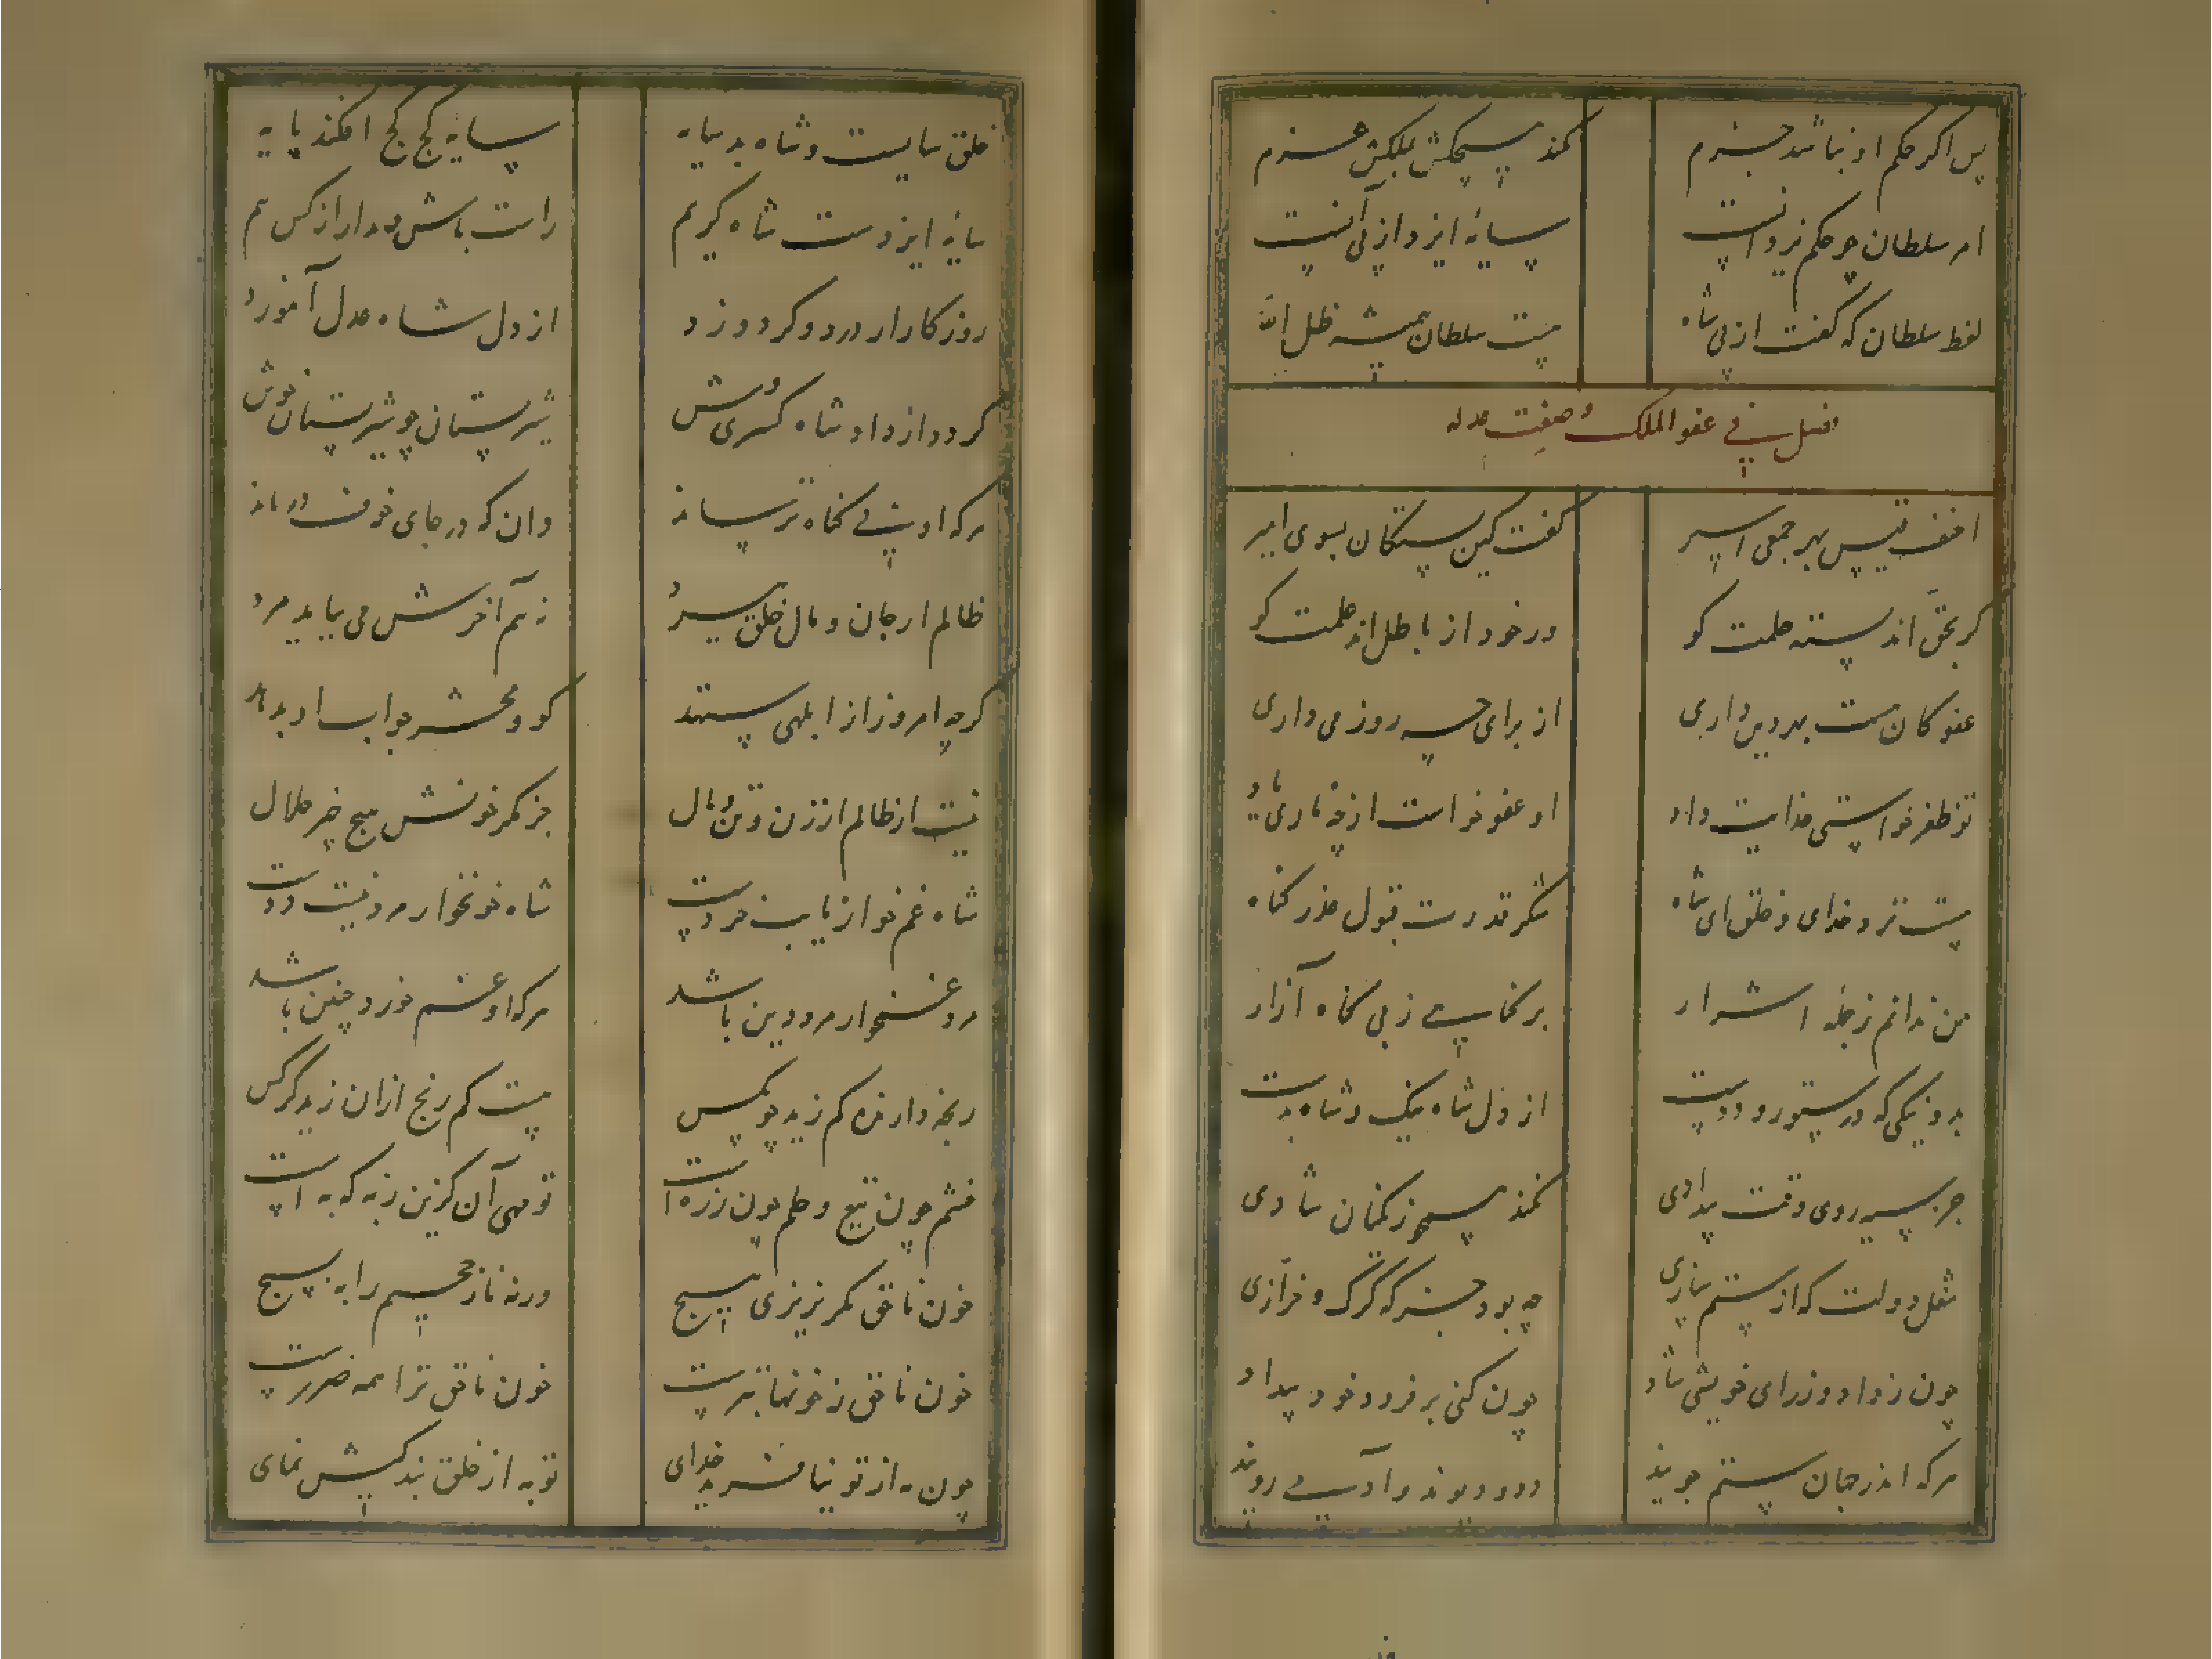 پس اگر حکم او نباشد جزم کند هیچکس بملکش عزم
امر سلطان چو حکم یزدانست سایهٔ ایزد از پی آنست
لفظ سلطان که گفت از پی شاه هست سلطان همیشه ظل الله
فصل فی عفو الملک و صفت عدله
احنف قیس بهر جمعی اسیر گفت کین بستگان بسوی امیر
گر بحق اند بسته حلمت کو ور خود از باطل اند علمت کو
عفو کان هست بهر دین داری از برای چه روز می داری
تو ظفر خواستی خدایت داد او عفو خواست از چه ناری یاد
هست نزد خدای و خلق ای شاه شکر قدرت قبول عذر گناه
من ندانم ز جمله اشرار بر نکاسی ز بی گناه آزار
بد و نیکی که در ستور و ددست از دل شاه نیک و شاه بدست
جز بسیه روی وقت بیدادی نکند هیچ زنگیان شادی
شغل دولت که از ستم سازی چه بود جز که گرگ و خرازی
چون ز داد و ز رای خویشی شاد چون کنی بر فرود خود بیداد
هر که اندر جهان ستم جویند دد و دیوند و آدمی رویند
خلق سایست و شاه بد سایه سایه کج کج افکند پایه
سایهٔ ایزدست شاه کریم راست باش و مدار از کس بیم
روزگار ار درد و گر دوزد از دل شاه عدل آموزد
گردد از داد شاه کسری وش شیرستان چو شیر پستان خوش
هر که او بی گناه ترساند وان که در جای خوف درماند
ظالم ار جان و مال خلق ببرد نه هم آخرش می بباید مرد
گرچه امروز از ابلهی ستند کو و محشر جواب او بدهد
نیست از ظالم از زن و تن و مال جز مگر خونش هیچ چیز حلال
شاه غم خوار نایب خردست شاه خونخوار مرد نیست ددست
مرد غمخوار مرد دین باشد هر که او غم خورد چنین باشد
رنجه دارنده کم زید چو مگس هست کم رنج ازان زید کرگس
خشم چون تیغ و حلم چون زره است تو مهی آن گزین ز به که به است
خون ناحق مگر نریزی هیچ ورنه ناز جحیم را به بسیج
خون ناحق ز خونها بترست خون ناحق ترا همه ضررست
چون به از تو نیافرید خدای تو به از خلق بند کیش نمای